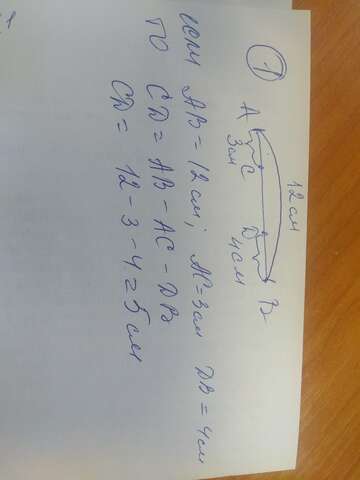 ①
12 см
A C D B
3см 4см
если AB = 12 см; AC = 3см DB = 4см
то CD = AB - AC - DB
CD = 12 - 3 - 4 = 5 см